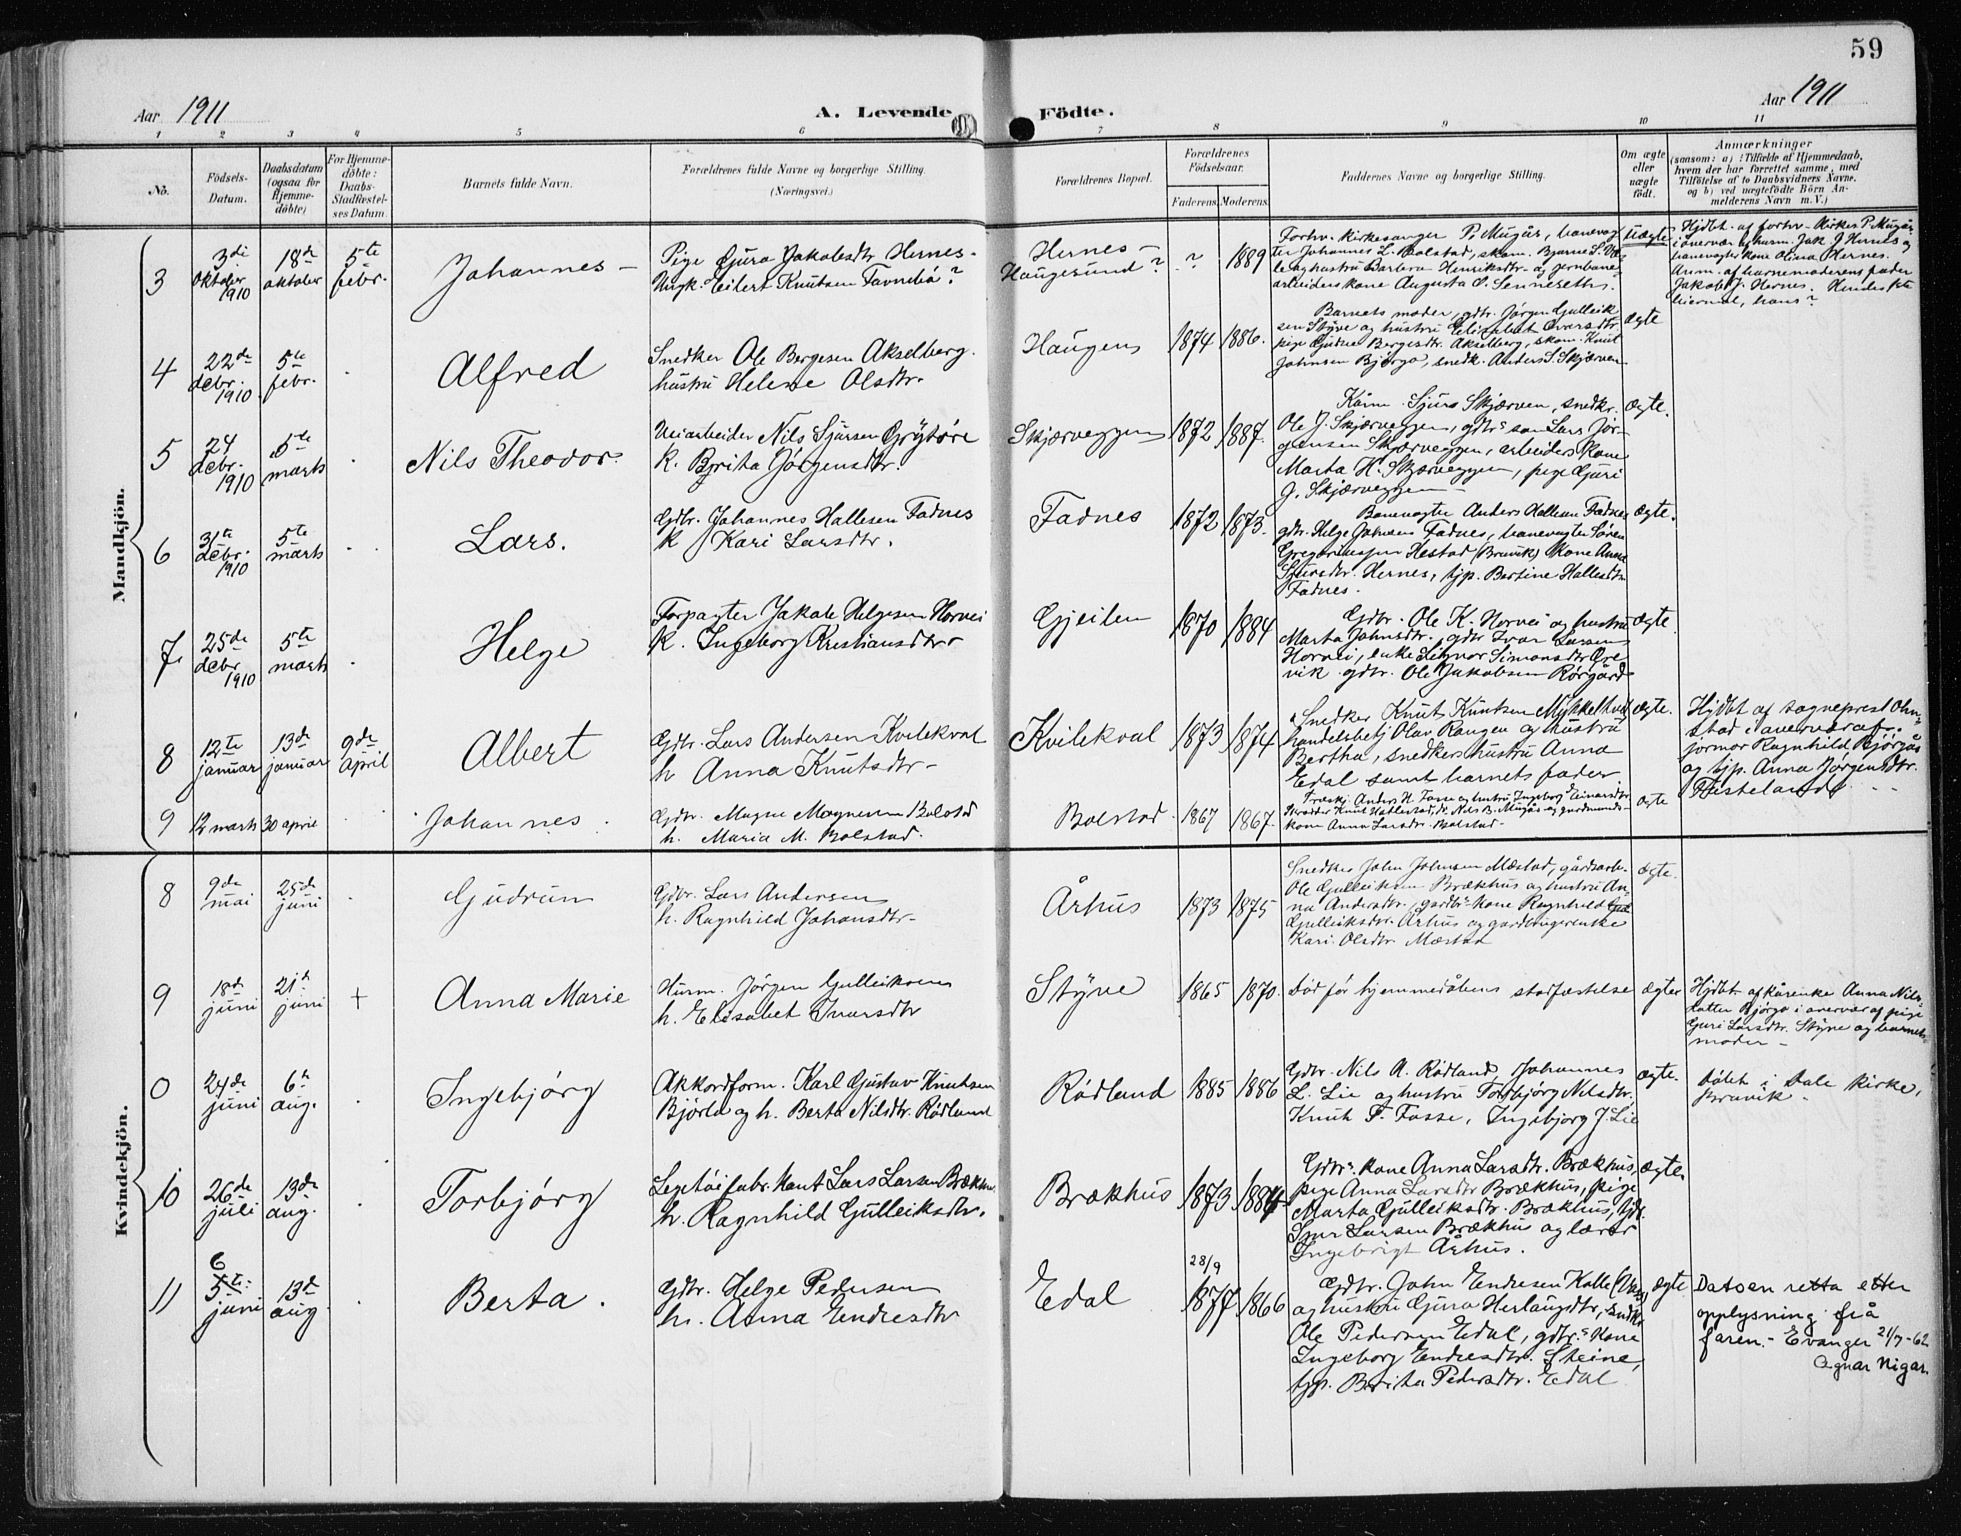 59
Aar 1911
A. Levende Födte.
Aar 1911
1 2 3 4 5 6 7 8 9 10 11
No.
Födsels-
Datum.
Daabsdatum
(ogsaa for
Hjemme-
döbte)
For Hjemme-
döbte:
Daabs-
Stadfæstel-
ses Datum.
Barnets fulde Navn.
Forældrenes fulde Navne og borgerlige Stilling.
(Næringsvei.)
Forældrenes Bopæl.
Forældrenes
Födselsaar.
Faderens. Moderens.
Faddernes Navne og borgerlige Stilling.
Om ægte
eller
uægte
födt.
Anmærkninger
(saasom: a) i Tilfælde af Hjemmedaab,
hvem der har forrettet samme, med
Tilföielse af to Daabsvidners Navne.
og b) ved uægtefödte Börn An-
melderens Navn m. V.)
Mandkjön.
3
3di
oktober
1910
18de
oktober
5te
febr.
Johannes
Pige Guro Jakobsdtr Hernes
Ungk. Eilert Knutsen Favnebö?
Hernes
Haugesund?
? 1889
Forhv. kirkesanger P. Mugås, banevog-
ter Johannes L. Bolstad, skom. Bjarne S. Væ-
le og hustru Barbra Henriksdtr. og jernbane-
arbeiderskone Augusta O. Senneseth.
uægte
Hjdbt. af forhv. kirkes. P. Mugås
i overvær af husm. Jak. J. Hernes og
banevogter kone Olina Hernes.
Anm. af barnemoderens fader
Jakob J. Hernes. Hendes 1ste
leiermål, hans?
4
22de
debr.
1910
5te
febr.
Alfred
Snedker Ole Bergesen Akselberg.
hustru Helene Olsdtr.
Haugen
1874 1886.
Barnets moder, gdtr. Jørgen Gulleik
sen Styve og hustru Elisabet Ivarsdtr
pige Gudrun Bergesdtr. Akselberg, skom. Knut
Johnsen Bjørgo, snedk. Anders S. Skjerven
ægte
5
24
debr.
1910
5te
marts
Nils Theodor.
Veiarbeider Nils Sjursen Grytöre
k. Brita Jörgensdtr.
Skjærveggen
1872 1887.
Kårm. Sjurs Skjærven, snedkr.
Ole J. Skjærveggen, gdtrs søn Lars Jör-
gensen Skjærveggen, arbeiders kone
Marta H. Skjærveggen, pige Guri
J. Skjærveggen
ægte.
6
31te
debr.
1910
5te
marts
Lars.
Gdbr. Johannes Hallesen Fadnes
k Kari Larsdtr.
Fadnes
1872 1873.
Banevogter Anders Hallesen Fadnes
gdtr. Helge Johnsens Fadnes, banevogter Sören
Gregoriussen Hestad (Bruvik) kone Anna
Sjursdtr. Hernes, tjp. Bertine Hallesdtr
Fadnes.
ægte.
7.
25de
debr
1910
5te
marts
Helge
Forpagter Jakob Helgesen Horvei
k. Ingeborg Kristiansdtr
Gjeilen
1870 1884
Gdbr. Ole K. Horvei og hustru
Marta Johnsdtr. gdtr Ivar Larsen
Horvei, enke Signor Simonsdtr Øre
vik gdtr. Ole Jakobsen Rörgård
ægte
8
12te
januar
13de
januar
9de
april
Albert
Gdbr. Lars Andersen Kvilekval
h Anna Knutsdtr
Kvilekval
1873 1874
Snedker Knut Knutsen Mykkeltvedt
handelsbetj Olav Rangen og hustru
Bertha, snedkers hustru Anna
Edal samt barnets fader
ægte.
Hjdbt af sogneprest Ohn-
stad i overvær af
jormor Ragnhild Bjørgås
og tjp. Anna Jørgensdtr.
Fletelands
9 12 marts 30 april
Johannes
Gdtr. Magne Magnesen Bolstad
h. Maria M. Bolstad.
Bolstad
1867 1867.
Træskj. Anders H. Fosse og hustru Ingeborg Einarsdtr
kone Anna Larsdtr. Bolstad
ægte
Kvindekjön.
8
9de
mai
25de
juni
Gudrun
Gdbr. Lars Andersen
h. Ragnhild Johansdtr
Århus
1873 1875
Snedker John Johnsen Mæstad, gårdsarb.
Ole Gulleiksen Brækhus og hustru An-
na Andersdtr, gardbrs kone Ragnhild
Gulleiksdtr. Århus og gardbrugerenke
Kari Olsdtr. Mæstad
ægte.
9
18de
juni
21de
juni
+
Anna Marie
Husm. Jørgen Gulleiksen
h. Elisabet Ivarsdtr
Styve
1865 1870.
Död før hjemmedåbens stadfæstelse
ægte
Hjdbt. af kårenke Anna Nils-
datter Bjørgo i overvær af pige
Guri Larsdtr. Styve og barnets
moder
0
24de
juni
6te
aug.
Ingebjørg
Akkordform. Karl Gustav Knutsen
Björlo og h. Berta Nilsdtr. Rödland
Rødland
1885 1886
Gdbr. Nils A. Rødland, Johannes
L. Lie og hustru Torbjørg Nilsdtr.
Knut F. Fosse, Ingebjorg J. Lie
ægte.
Döbt i Dale kirke,
Bruvik
10
26de
juli
13de
aug.
Torbjørg
Legetöifabrikant Lars Larsen Brækhus
h. Ragnhild Gulleiksdtr.
Brækhus
1873 1884
Gdtrs. kone Anna Larsdtr. Brækhus,
pige Anna Larsdtr Brækhus, pige
Marta Gulleiksdtr. Brækhus, tjdr.
Sjur Larsen Brækhus og lærer
Ingebrigt Århus.
ægte.
11
6
5te
juni
13de
aug
Berta.
Gdtr. Helge Pedersen
h. Anna Endresdtr
Edal
28/9
1877 1866
Gdtr. John Endresen Kalle (Voss)
og hustru Guro Herlaugdtr, snedkr
Ole Pedersen Edal, gdtrs kone
Ingeborg Endresdtr. Steine,
tjp. Brita Pedersdtr. Edal
ægte
Datoen retta etter
opplysning frå
faren. Evanger 21/7-62
Agnar Nigar.